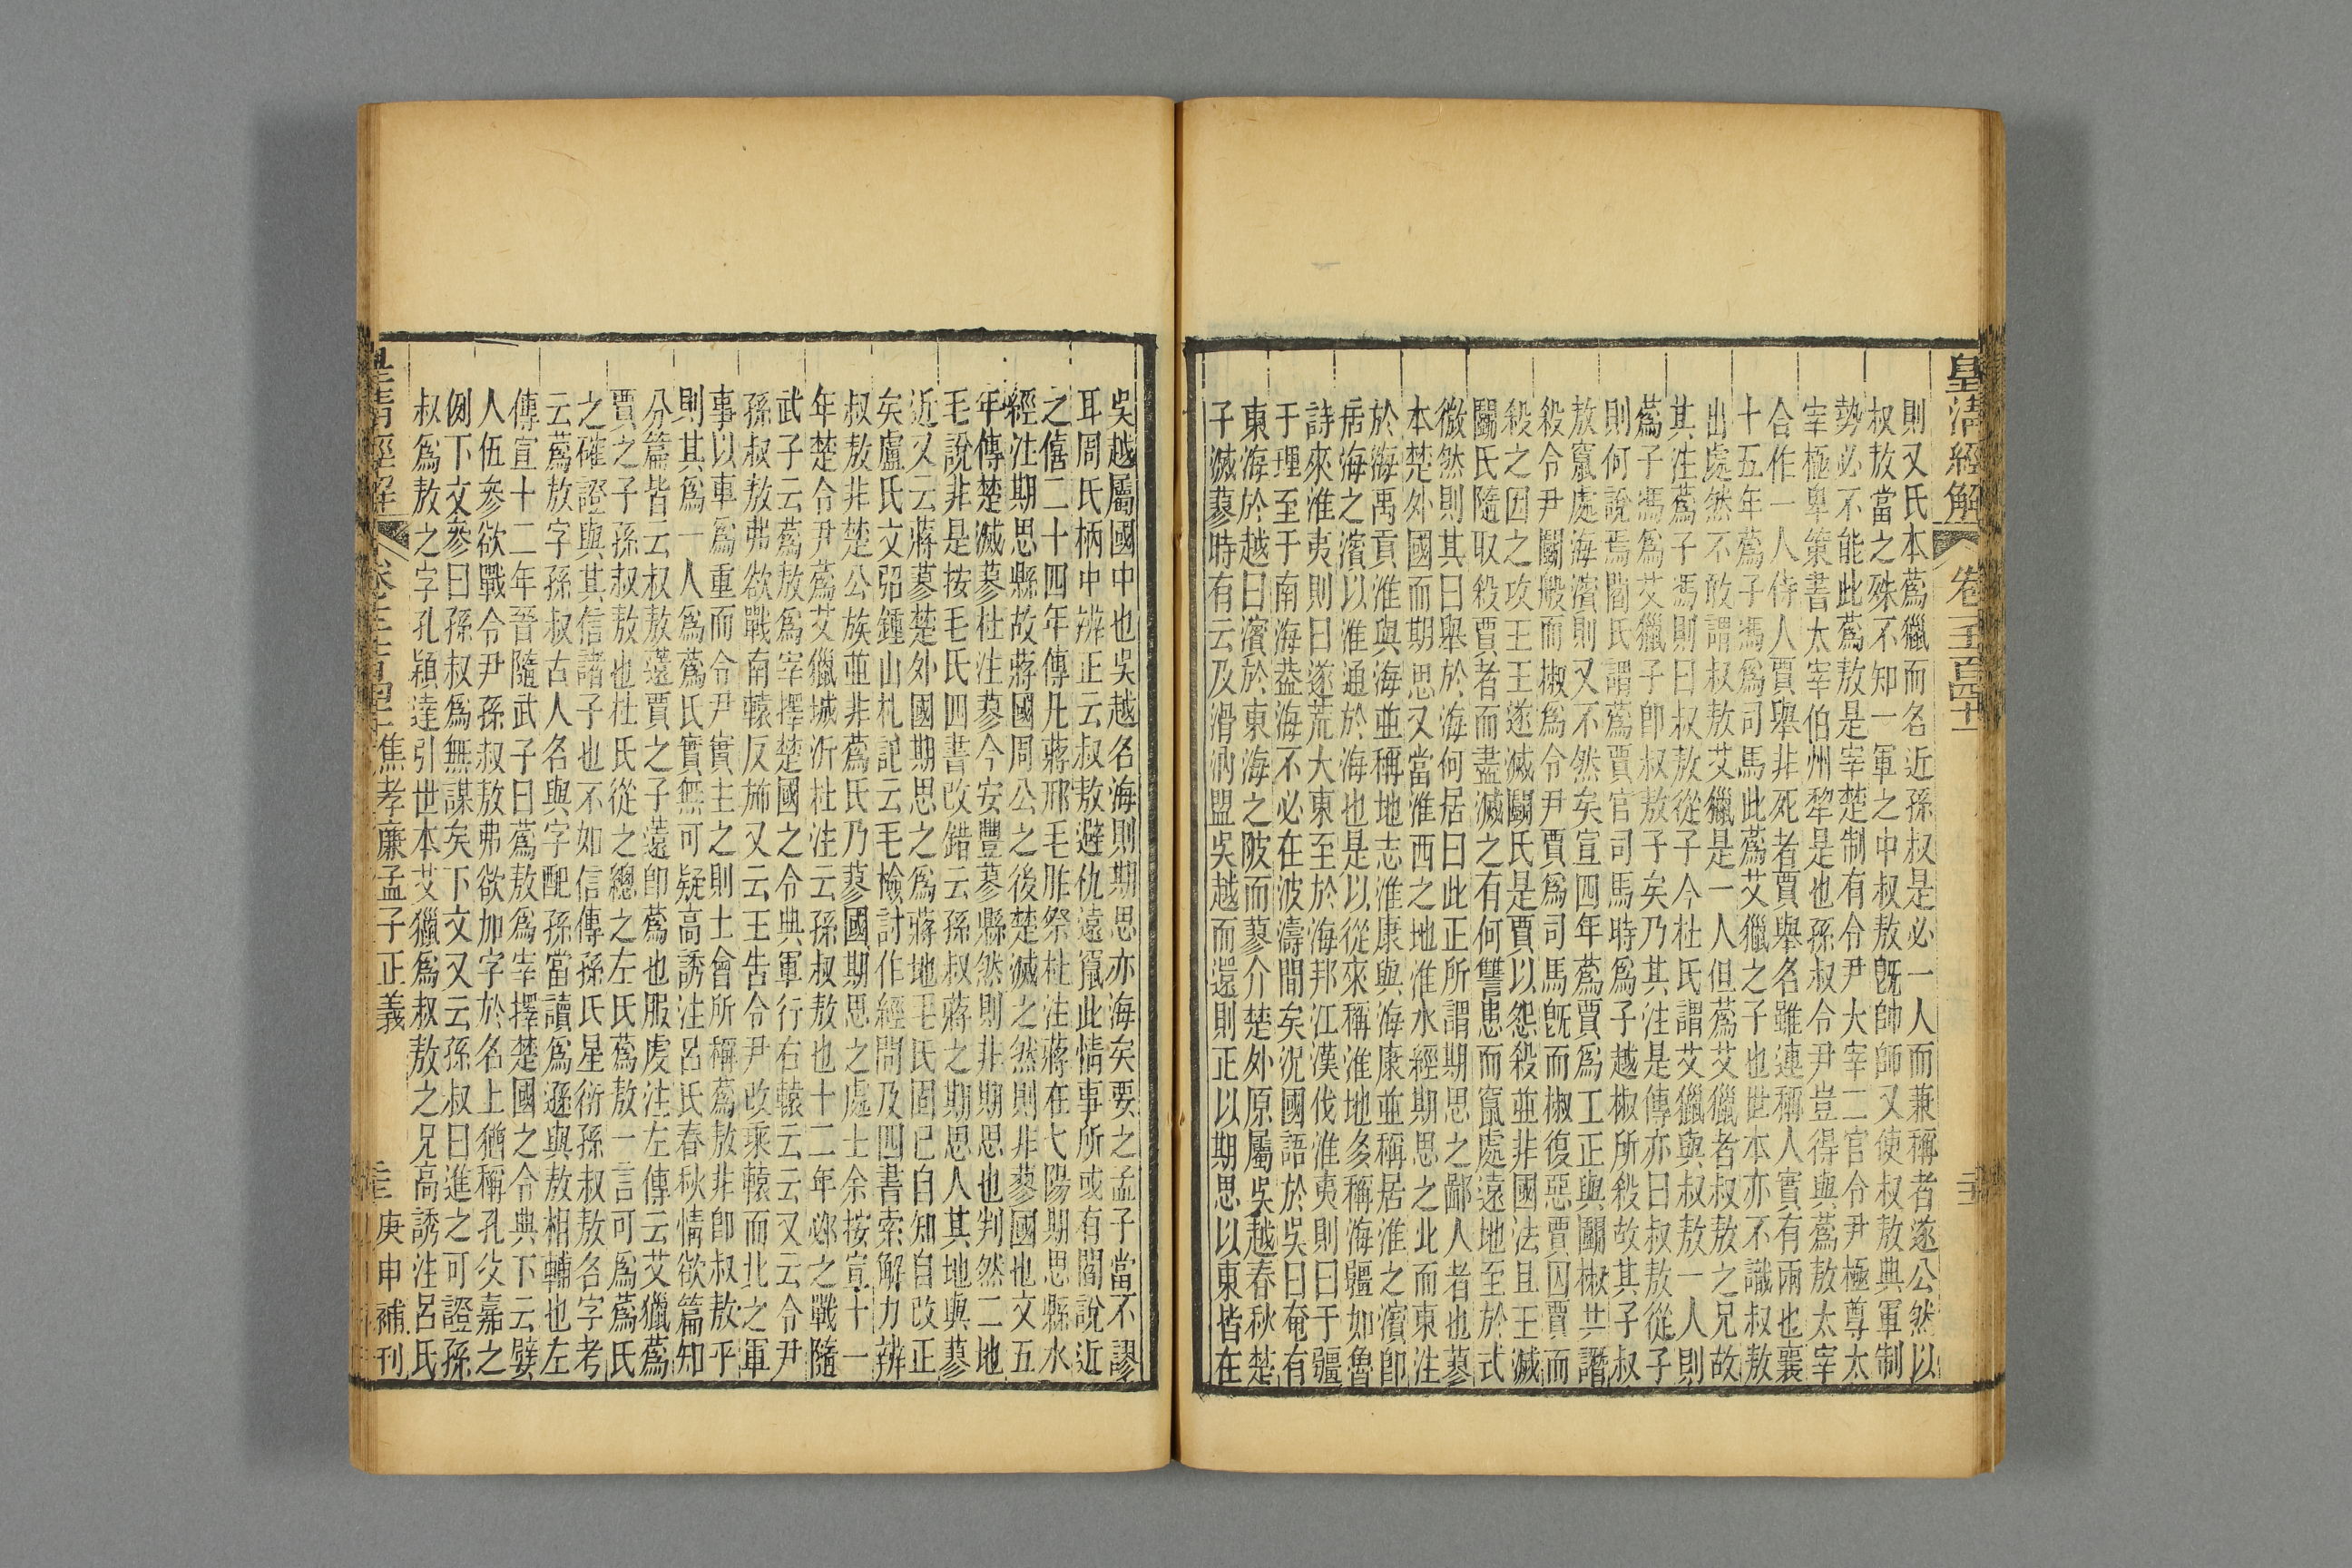 皇清經解 卷一千百四十一
則又氏本蒍獵而名近孫叔是必一人而兼稱者遂公然以
叔敖當之殊不知一軍之中叔敖旣帥師又使叔敖典軍制
勢必不能此蒍敖是宰楚制有令尹大宰二官令尹極尊太
宰極卑策書太宰伯州犂是也孫叔令尹豈得與蒍敖太宰
合作一人侍人賈舉非死者賈舉名雖連稱人實有兩也襄
十五年蒍子馮爲司馬此蒍艾獵之子也世本亦不識叔敖
出處然不敢謂叔敖艾獵是一人但蒍艾獵者叔敖之兄故
其注蒍子馮則曰叔敖從子今杜氏謂艾獵與叔敖一人則
蒍子馮爲艾獵子卽叔敖子矣乃其注是傳亦曰叔敖從子
則何說焉閻氏謂蒍賈官司馬時爲子越椒所殺故其子叔
敖竄處海濱則又不然矣宣四年蒍賈爲工正與鬭椒共譖
殺令尹鬭般而椒爲令尹賈爲司馬旣而椒復惡賈囚賈而
殺之因之攻王王遂滅鬭氏是賈以怨殺並非國法且王滅
鬭氏隨取殺賈者而盡滅之有何讐患而竄處遠地至於式
微然則其曰舉於海何居曰此正所謂期思之鄙人者也蓼
本楚外國而期思又當淮西之地淮水經期思之北而東注
於海禹貢淮與海並稱地志淮康與海康並稱居淮之濱卽
居海之濱以淮通於海也是以從來稱淮地多稱海疆如魯
詩來淮夷則曰遂荒大東至於海邦江漢伐淮夷則曰于疆
于理至于南海葢海不必在波濤間矣況國語於吳曰奄有
東海於越曰濱於東海之陂而蓼介楚外原屬吳越春秋楚
子滅蓼時有云及滑汭盟吳越而還則正以期思以東皆在
吳越屬國中也吳越名海則期思亦海矣要之孟子當不謬
耳周氏柄中辨正云叔敖避仇遠竄此情事所或有閻說近
之僖二十四年傳凡蔣邢毛胙祭杜注蔣在弋陽期思縣水
經注期思縣故蔣國周公之後楚滅之然則非蓼國也文五
年傳楚滅蓼杜注蓼今安豐蓼縣然則非期思也判然二地
毛說非是按毛氏四書改錯云孫叔蔣之期思人其地與蓼
近又云蔣蓼楚外國期思之爲蔣地毛氏固已自知自改正
矣盧氏文弨鍾山札記云毛檢討作經問及四書索解力辨
叔敖非楚公族並非蒍氏乃蓼國期思之處士余按宣十一
年楚令尹蒍艾獵城沂杜注云孫叔敖也十二年邲之戰隨
武子云蒍敖爲宰擇楚國之令典軍行右轅云云又云令尹
孫叔敖弗欲戰南轅反斾又云王告令尹改乘轅而北之軍
事以車爲重而令尹實主之則士會所稱蒍敖非卽叔敖乎
則其爲一人爲蒍氏實無可疑高誘注呂氏春秋情欲篇知
分篇皆云叔敖薳賈之子薳卽蒍也服虔注左傳云艾獵蒍
賈之子孫叔敖也杜氏從之總之左氏蒍敖一言可爲蒍氏
之確證與其信諸子也不如信傳孫氏星衍孫叔敖名字考
云蒍敖字孫叔古人名與字配孫當讀爲遜與敖相輔也左
傳宣十二年晉隨武子曰蒍敖爲宰擇楚國之令典下云嬖
人伍參欲戰令尹孫叔敖弗欲加字於名上猶稱孔父嘉之
例下文參曰孫叔爲無謀矣下文又云孫叔曰進之可證孫
叔爲敖之字孔穎達引世本艾獵爲叔敖之兄高誘注呂氏
焦孝廉孟子正義 庚申補刊